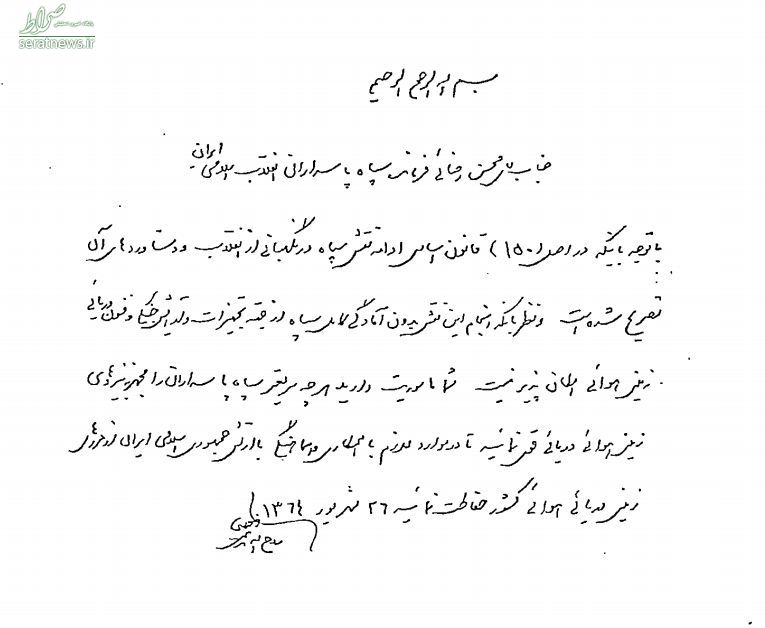 صراط
seratnews.ir
بسم الله الرحمن الرحیم
جناب آقای محسن رضائی فرمانده سپاه پاسداران انقلاب اسلامی ایران
با توجه باینکه در اصل (۱۵۰) قانون اساسی ادامه نقش سپاه در نگهبانی از انقلاب و دستاوردهای آن
تصریح شده است و نظر باینکه انجام این نقش بدون آمادگی کامل سپاه از نقطه تجهیزات و تدابیر جنگی و فنون دریائی
زمینی هوائی امکان پذیر نیست شما ماموریت دارید هرچه سریعتر سپاه پاسداران را مجهز به نیروی
زمینی هوائی دریائی قوی نمائید تا در موارد لازم با همکاری و هماهنگی با ارتش جمهوری اسلامی ایران از مرزهای
زمینی دریائی هوائی کشور حفاظت نمائید ۲۶ شهریور ۱۳۶۴
روح الله الموسوی الخمینی